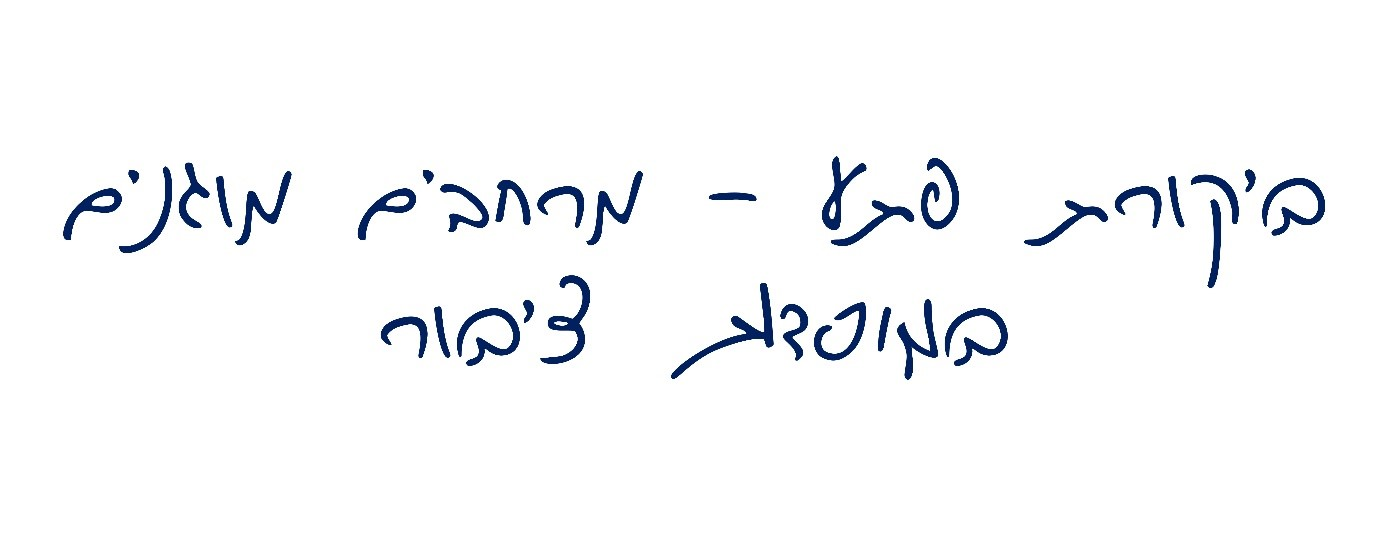 ביקורת פתע – מרחבים מוגנים
במוסדות ציבור